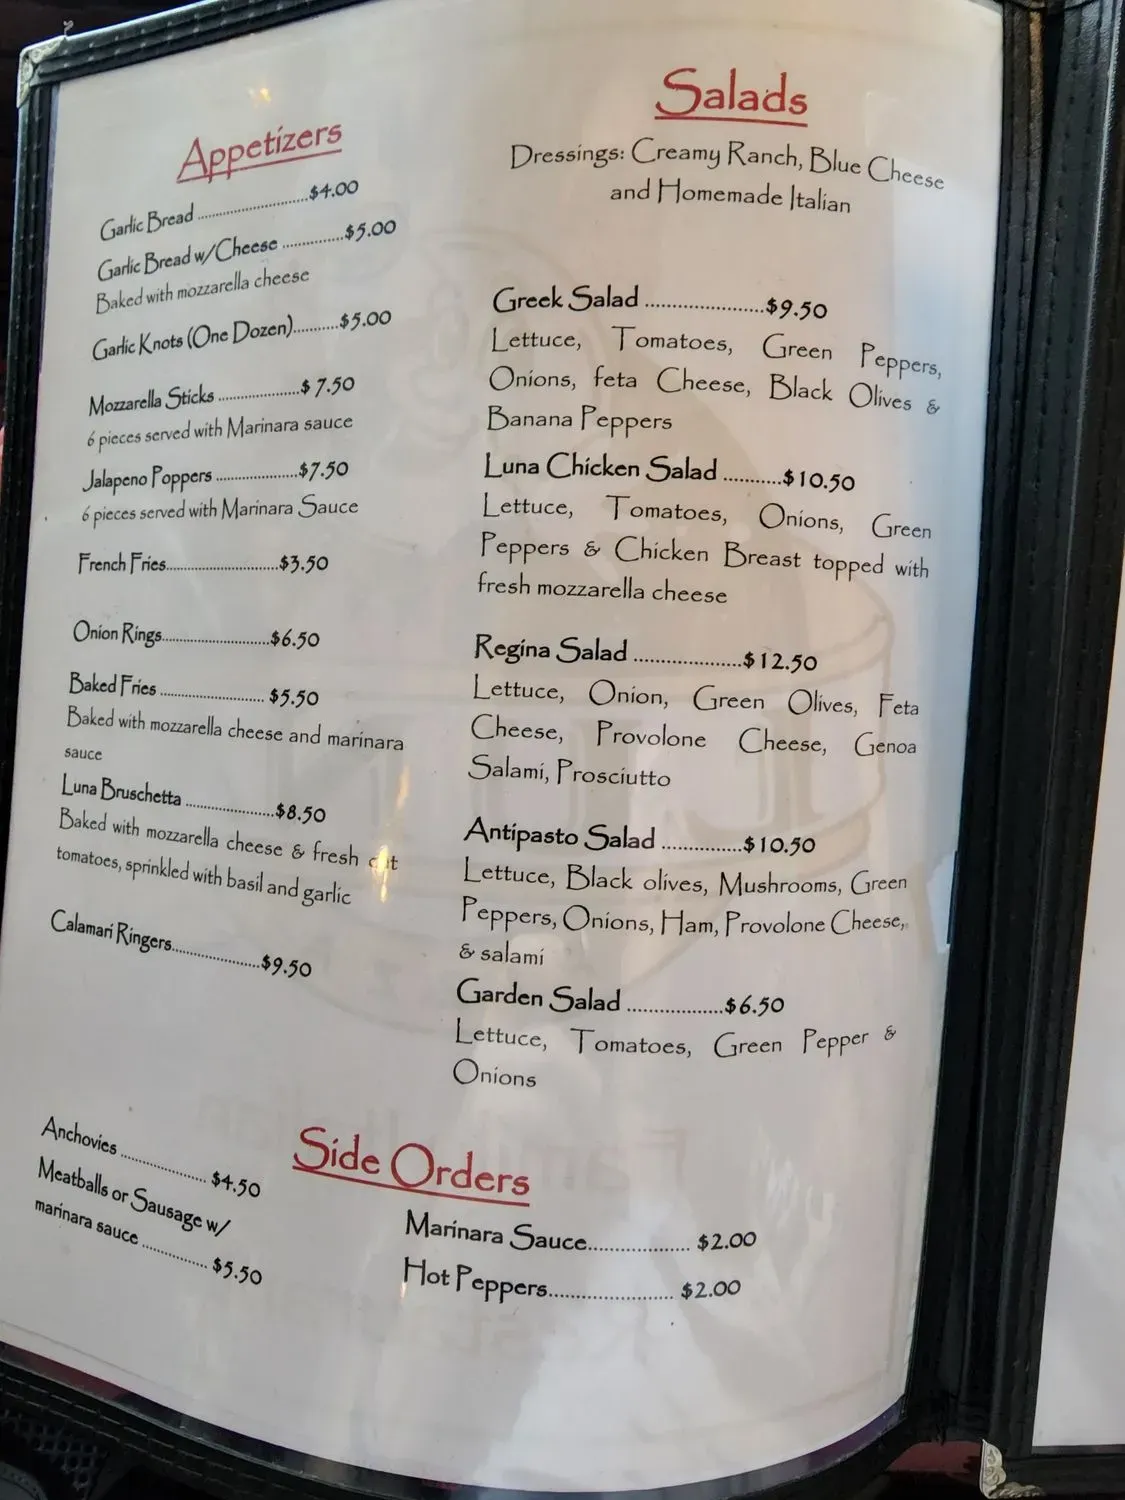 Appetizers
Garlic Bread ..............................$4.00
Garlic Bread w/Cheese ...............$5.00
Baked with mozzarella cheese
Garlic Knots (One Dozen)...........$5.00
Mozzarella Sticks ....................$ 7.50
6 pieces served with Marinara sauce
Jalapeno Poppers ....................$7.50
6 pieces served with Marinara Sauce
French Fries............................$3.50
Onion Rings...........................$6.50
Baked Fries .......................... $5.50
Baked with mozzarella cheese and marinara
sauce
Luna Bruschetta ......................$8.50
Baked with mozzarella cheese & fresh cut
tomatoes, sprinkled with basil and garlic
Calamari Ringers......................$9.50
Salads
Dressings: Creamy Ranch, Blue Cheese
and Homemade Italian
Greek Salad ........................$9.50
Lettuce, Tomatoes, Green Peppers,
Onions, feta Cheese, Black Olives &
Banana Peppers
Luna Chicken Salad ...........$10.50
Lettuce, Tomatoes, Onions, Green
Peppers & Chicken Breast topped with
fresh mozzarella cheese
Regina Salad .....................$12.50
Lettuce, Onion, Green Olives, Feta
Cheese, Provolone Cheese, Genoa
Salami, Prosciutto
Antipasto Salad ................$10.50
Lettuce, Black olives, Mushrooms, Green
Peppers, Onions, Ham, Provolone Cheese,
& salami
Garden Salad ...................$6.50
Lettuce, Tomatoes, Green Pepper &
Onions
Side Orders
Anchovies .................. $4.50
Meatballs or Sausage w/
marinara sauce .............. $5.50
Marinara Sauce.................... $2.00
Hot Peppers......................... $2.00